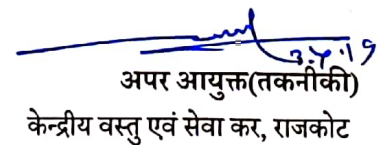 3.4.19
अपर आयुक्त(तकनीकी)
केन्द्रीय वस्तु एवं सेवा कर, राजकोट